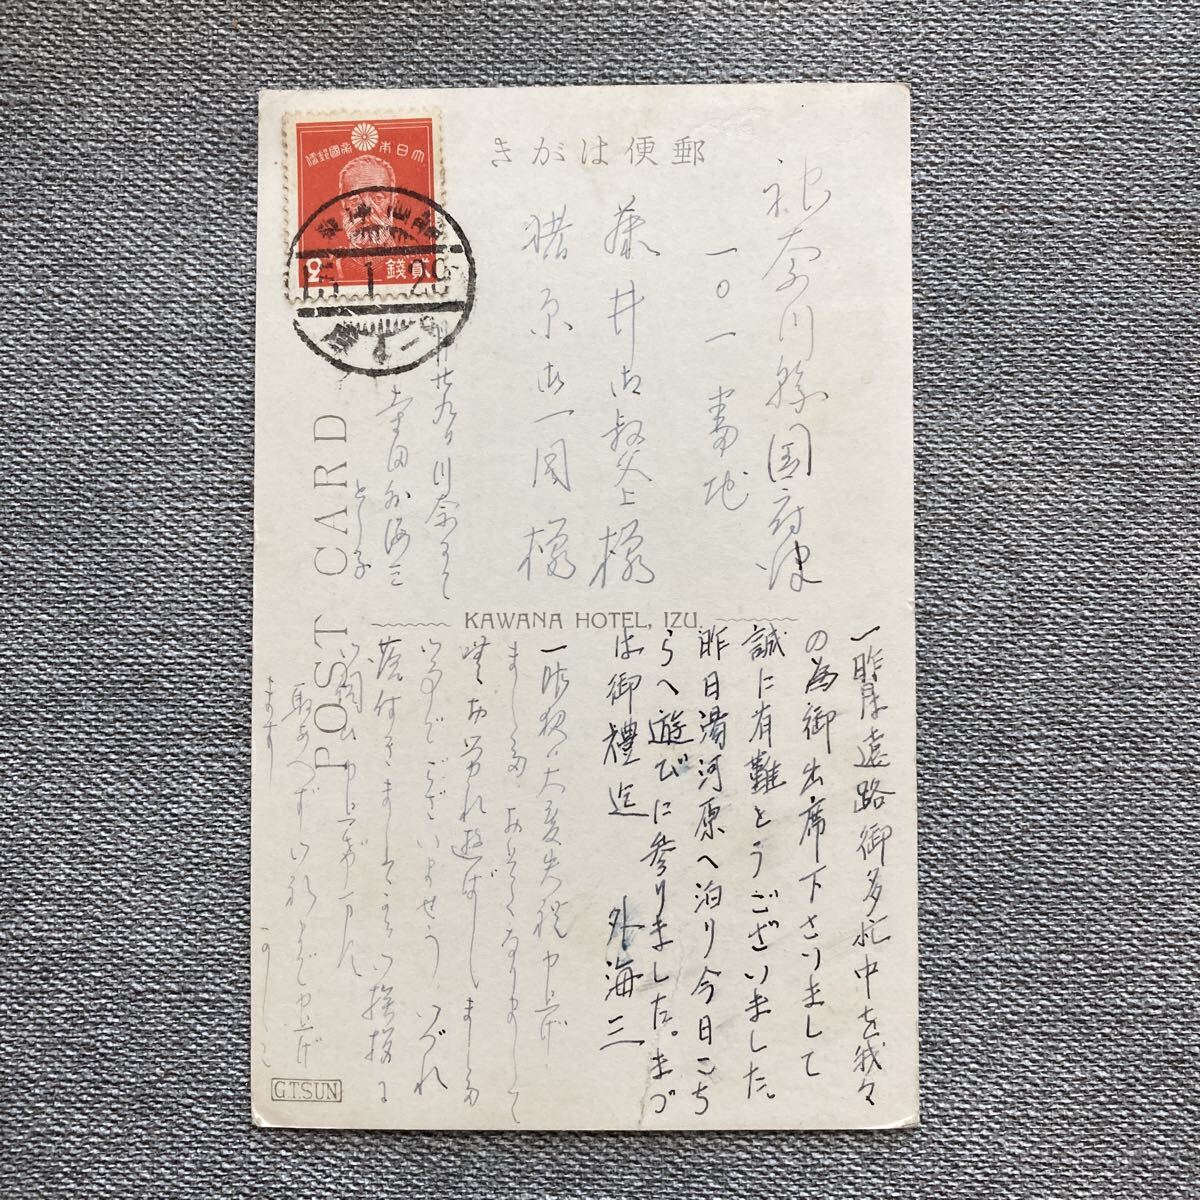 郵便はがき
大日本帝國郵便
2
貳錢
15.1.29
神奈川縣国府津
一〇一番地
藤井御叔父上様
猪原御一同様
廿九日川奈にて
外海三
とし子
POST CARD
KAWANA HOTEL, IZU.
一昨日は遠路御多忙中を我々
の為御出席下さりまして
誠に有難とうございました。
昨日湯河原へ泊り今日こち
らへ遊びに参りました。まづ
は御禮迄 外海三
一昨夜は大変失禮申上げ
ました おそくなりまして
嘸お労れ遊ばしました
事でございませう いづれ
落付きましてから御挨拶に
御伺ひ申上げます
取あへず御礼まで申上げ
ます かしこ
G.T.SUN